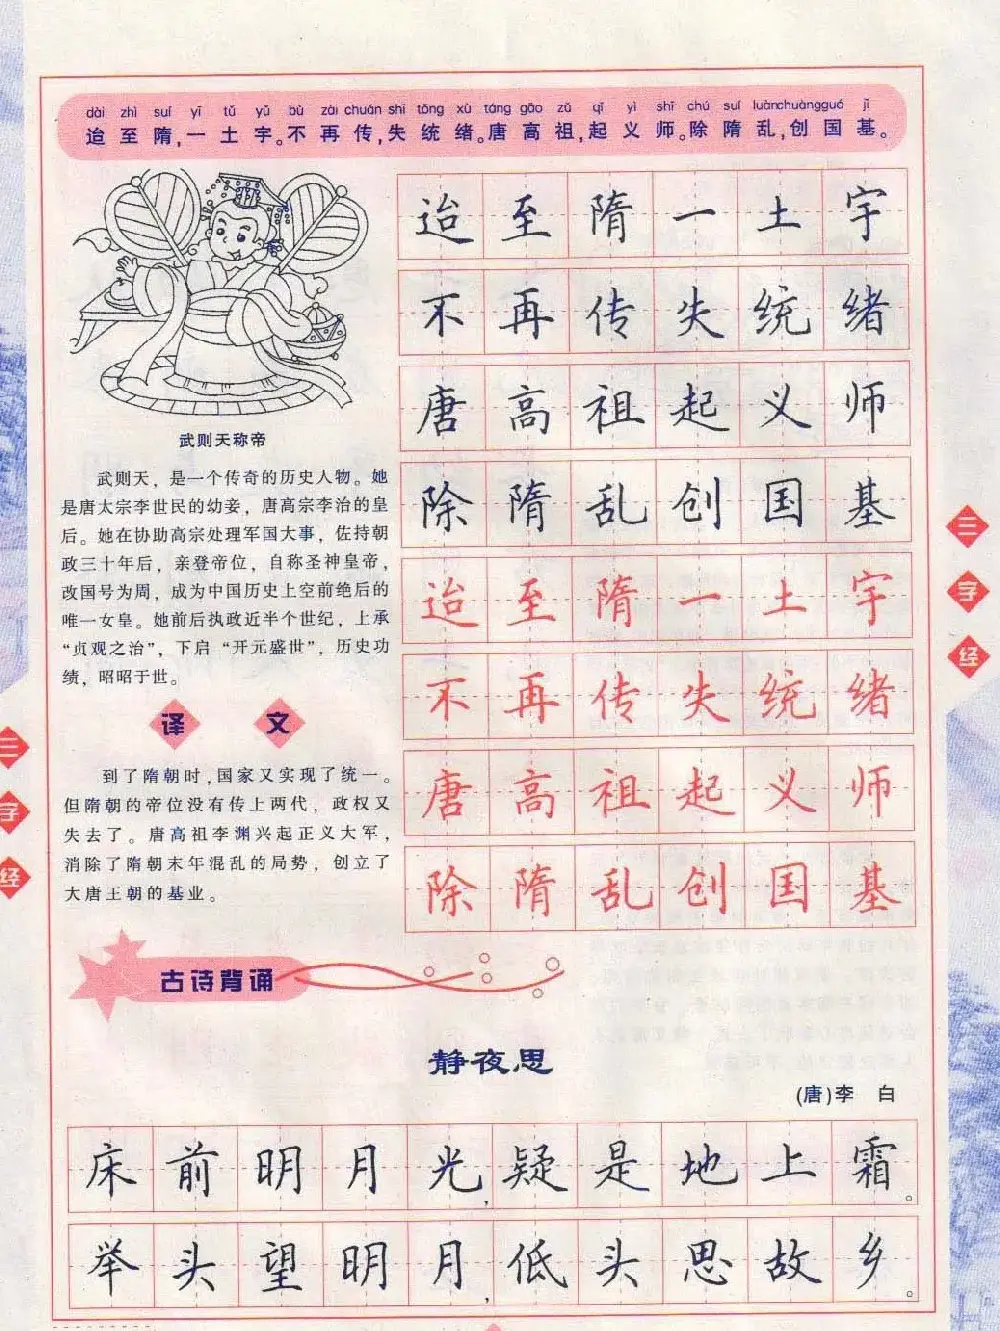 dài zhì suí yī tǔ yǔ bù zài chuán shī tǒng xù táng gāo zǔ qǐ yì shī chú suí luàn chuàng guó jī
迨至隋,一土宇。不再传,失统绪。唐高祖,起义师。除隋乱,创国基。
武则天称帝
武则天，是一个传奇的历史人物。她
是唐太宗李世民的幼妾，唐高宗李治的皇
后。她在协助高宗处理军国大事，佐持朝
政三十年后，亲登帝位，自称圣神皇帝，
改国号为周，成为中国历史上空前绝后的
唯一女皇。她前后执政近半个世纪，上承
“贞观之治”，下启“开元盛世”，历史功
绩，昭昭于世。
译文
到了隋朝时,国家又实现了统一。
但隋朝的帝位没有传上两代，政权又
失去了。唐高祖李渊兴起正义大军，
消除了隋朝末年混乱的局势，创立了
大唐王朝的基业。
迨至隋一土宇
不再传失统绪
唐高祖起义师
除隋乱创国基
迨至隋一土宇
不再传失统绪
唐高祖起义师
除隋乱创国基
古诗背诵
静夜思
(唐)李 白
床前明月光,疑是地上霜。
举头望明月,低头思故乡。
三字经
三字经